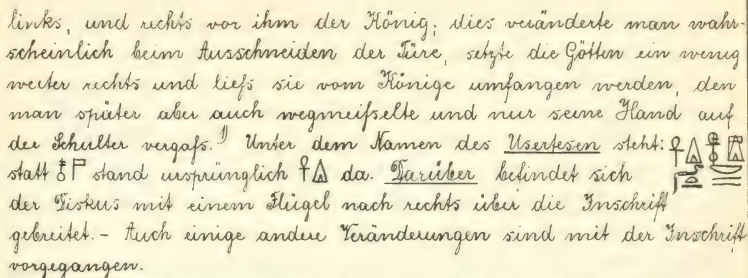 links, und rechts vor ihm der König; dies veränderte man wahr-
scheinlich beim Ausschneiden der Türe, setzte die Götten ein wenig
weiter rechts und liefs sie vom Könige umfangen werden, den
man später aber auch wegmeifselte und nur seine Hand auf
der Schulter vergafs.¹⁾ Unter dem Namen des Usertesen steht:
statt 𓄤𓊹 stand ursprünglich 𓋹𓏙 da. Darüber befindet sich
der Diskus mit einem Flügel nach rechts über die Inschrift
gebreitet. - Auch einige andere Veränderungen sind mit der Inschrift
vorgegangen.